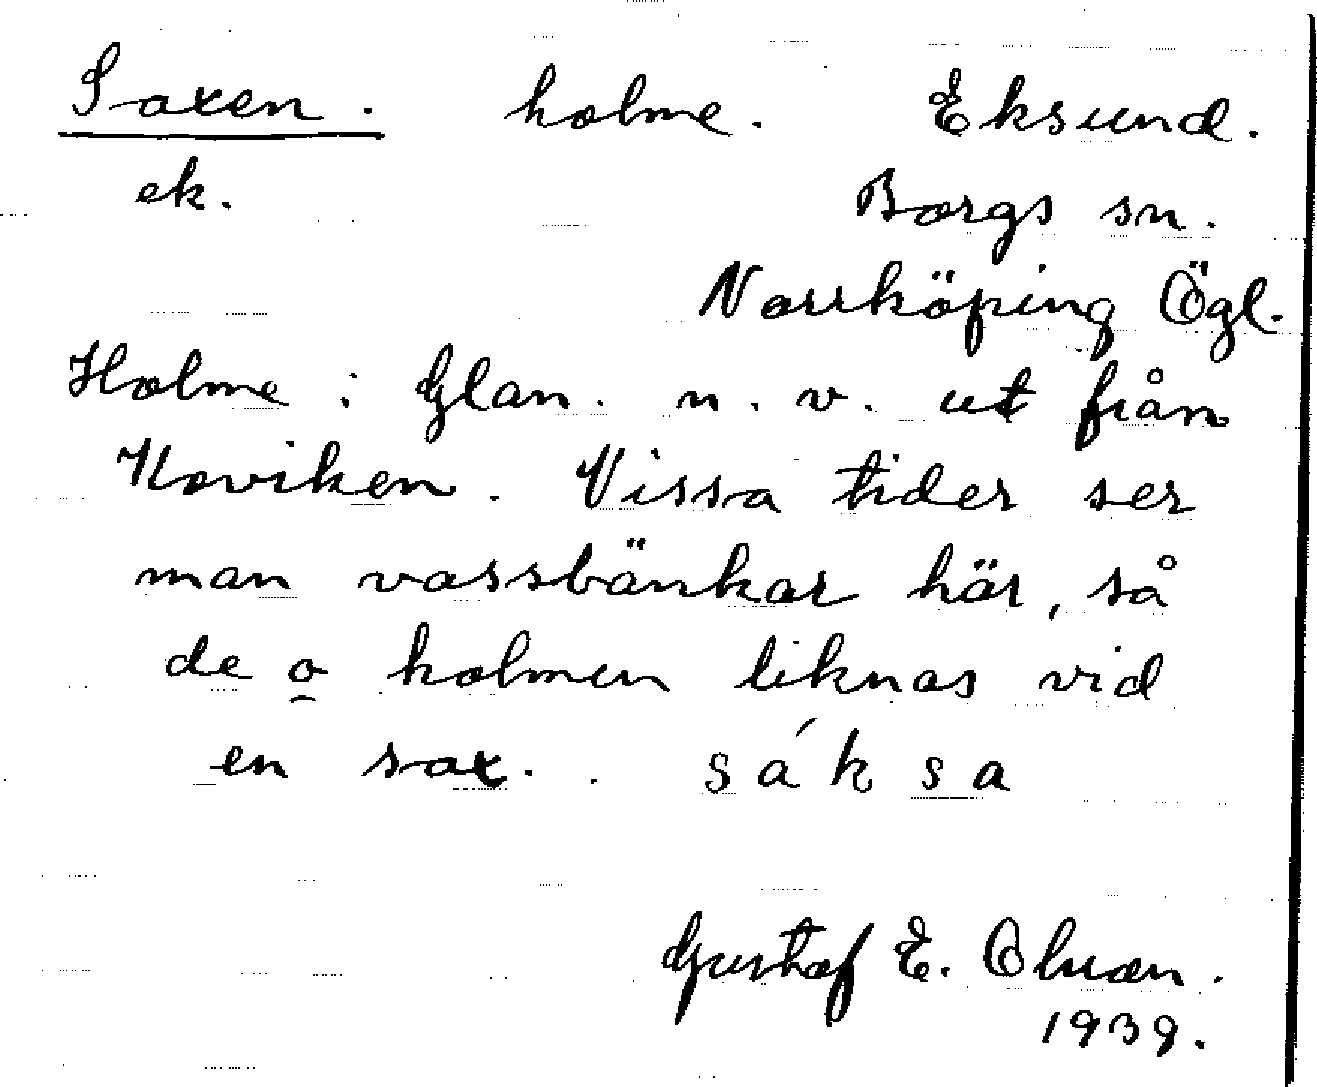 Saxen. holme. Eksund.
ek. Borgs sn.
Norrköping Ögl.
Holme i Glan. n. v. ut från
Koviken. Vissa tider ser
man vassbänkar här, så
de o holmen liknas vid
en sax. . sáksa
Gustaf E. Olson.
1939.